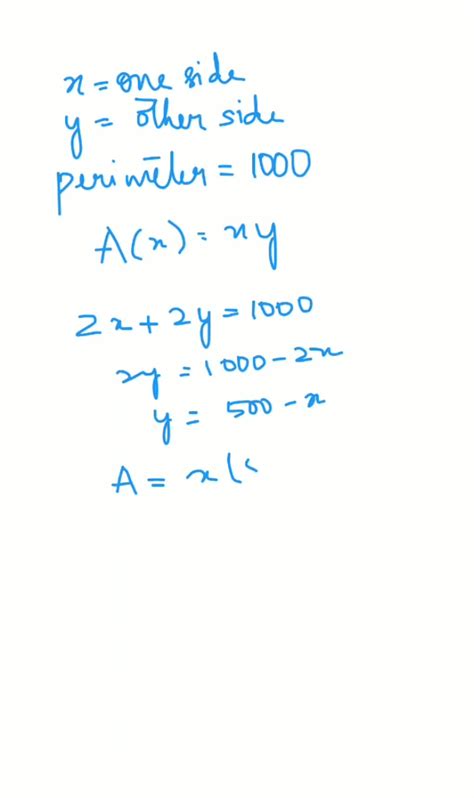 x = one side
y = other side
perimeter = 1000
A(x) = xy
2x + 2y = 1000
2y = 1000 - 2x
y = 500 - x
A = x (